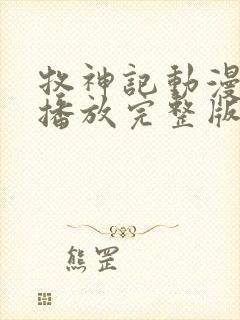 牧神記動漫
播放完整版
熊罡